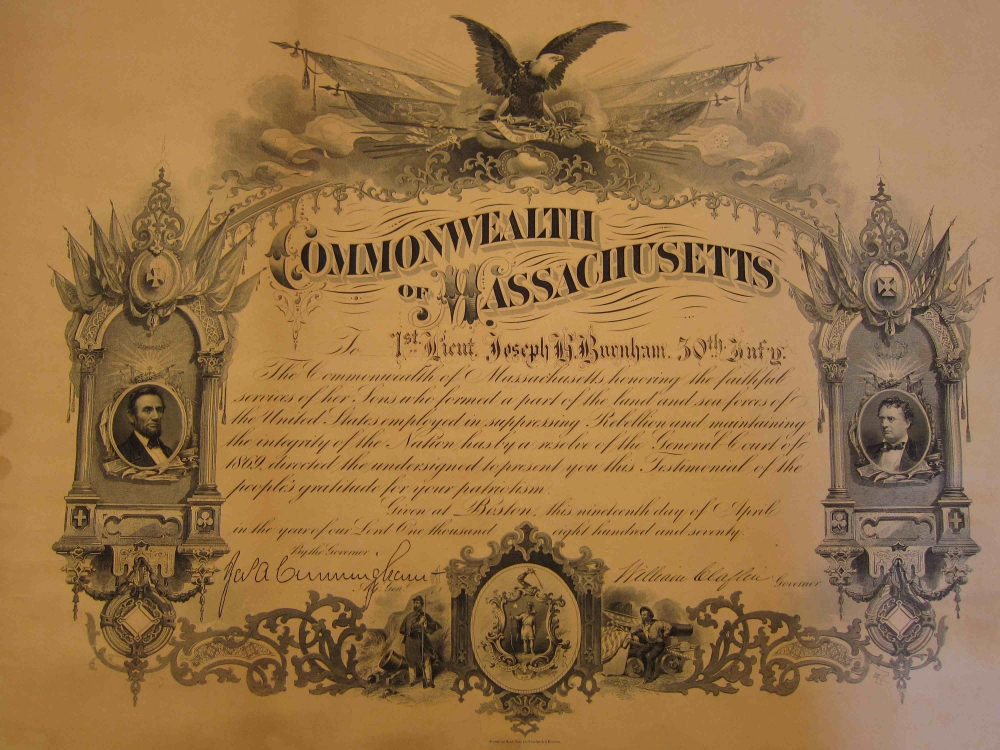 COMMONWEALTH
OF MASSACHUSETTS
To 1st Lieut. Joseph B. Burnham. 30th Inf'y.
The Commonwealth of Massachusetts honoring the faithful
services of her Sons who formed a part of the land and sea forces of
the United States employed in suppressing Rebellion and maintaining
the integrity of the Nation has by a resolve of the General Court of
1869, directed the undersigned to present you this Testimonial of the
people's gratitude for your patriotism.
Given at Boston, this nineteenth day of April
in the year of our Lord One thousand eight hundred and seventy.
By the Governor
Jas. A. Cunningham
Adj. Gen.
William Claflin Governor